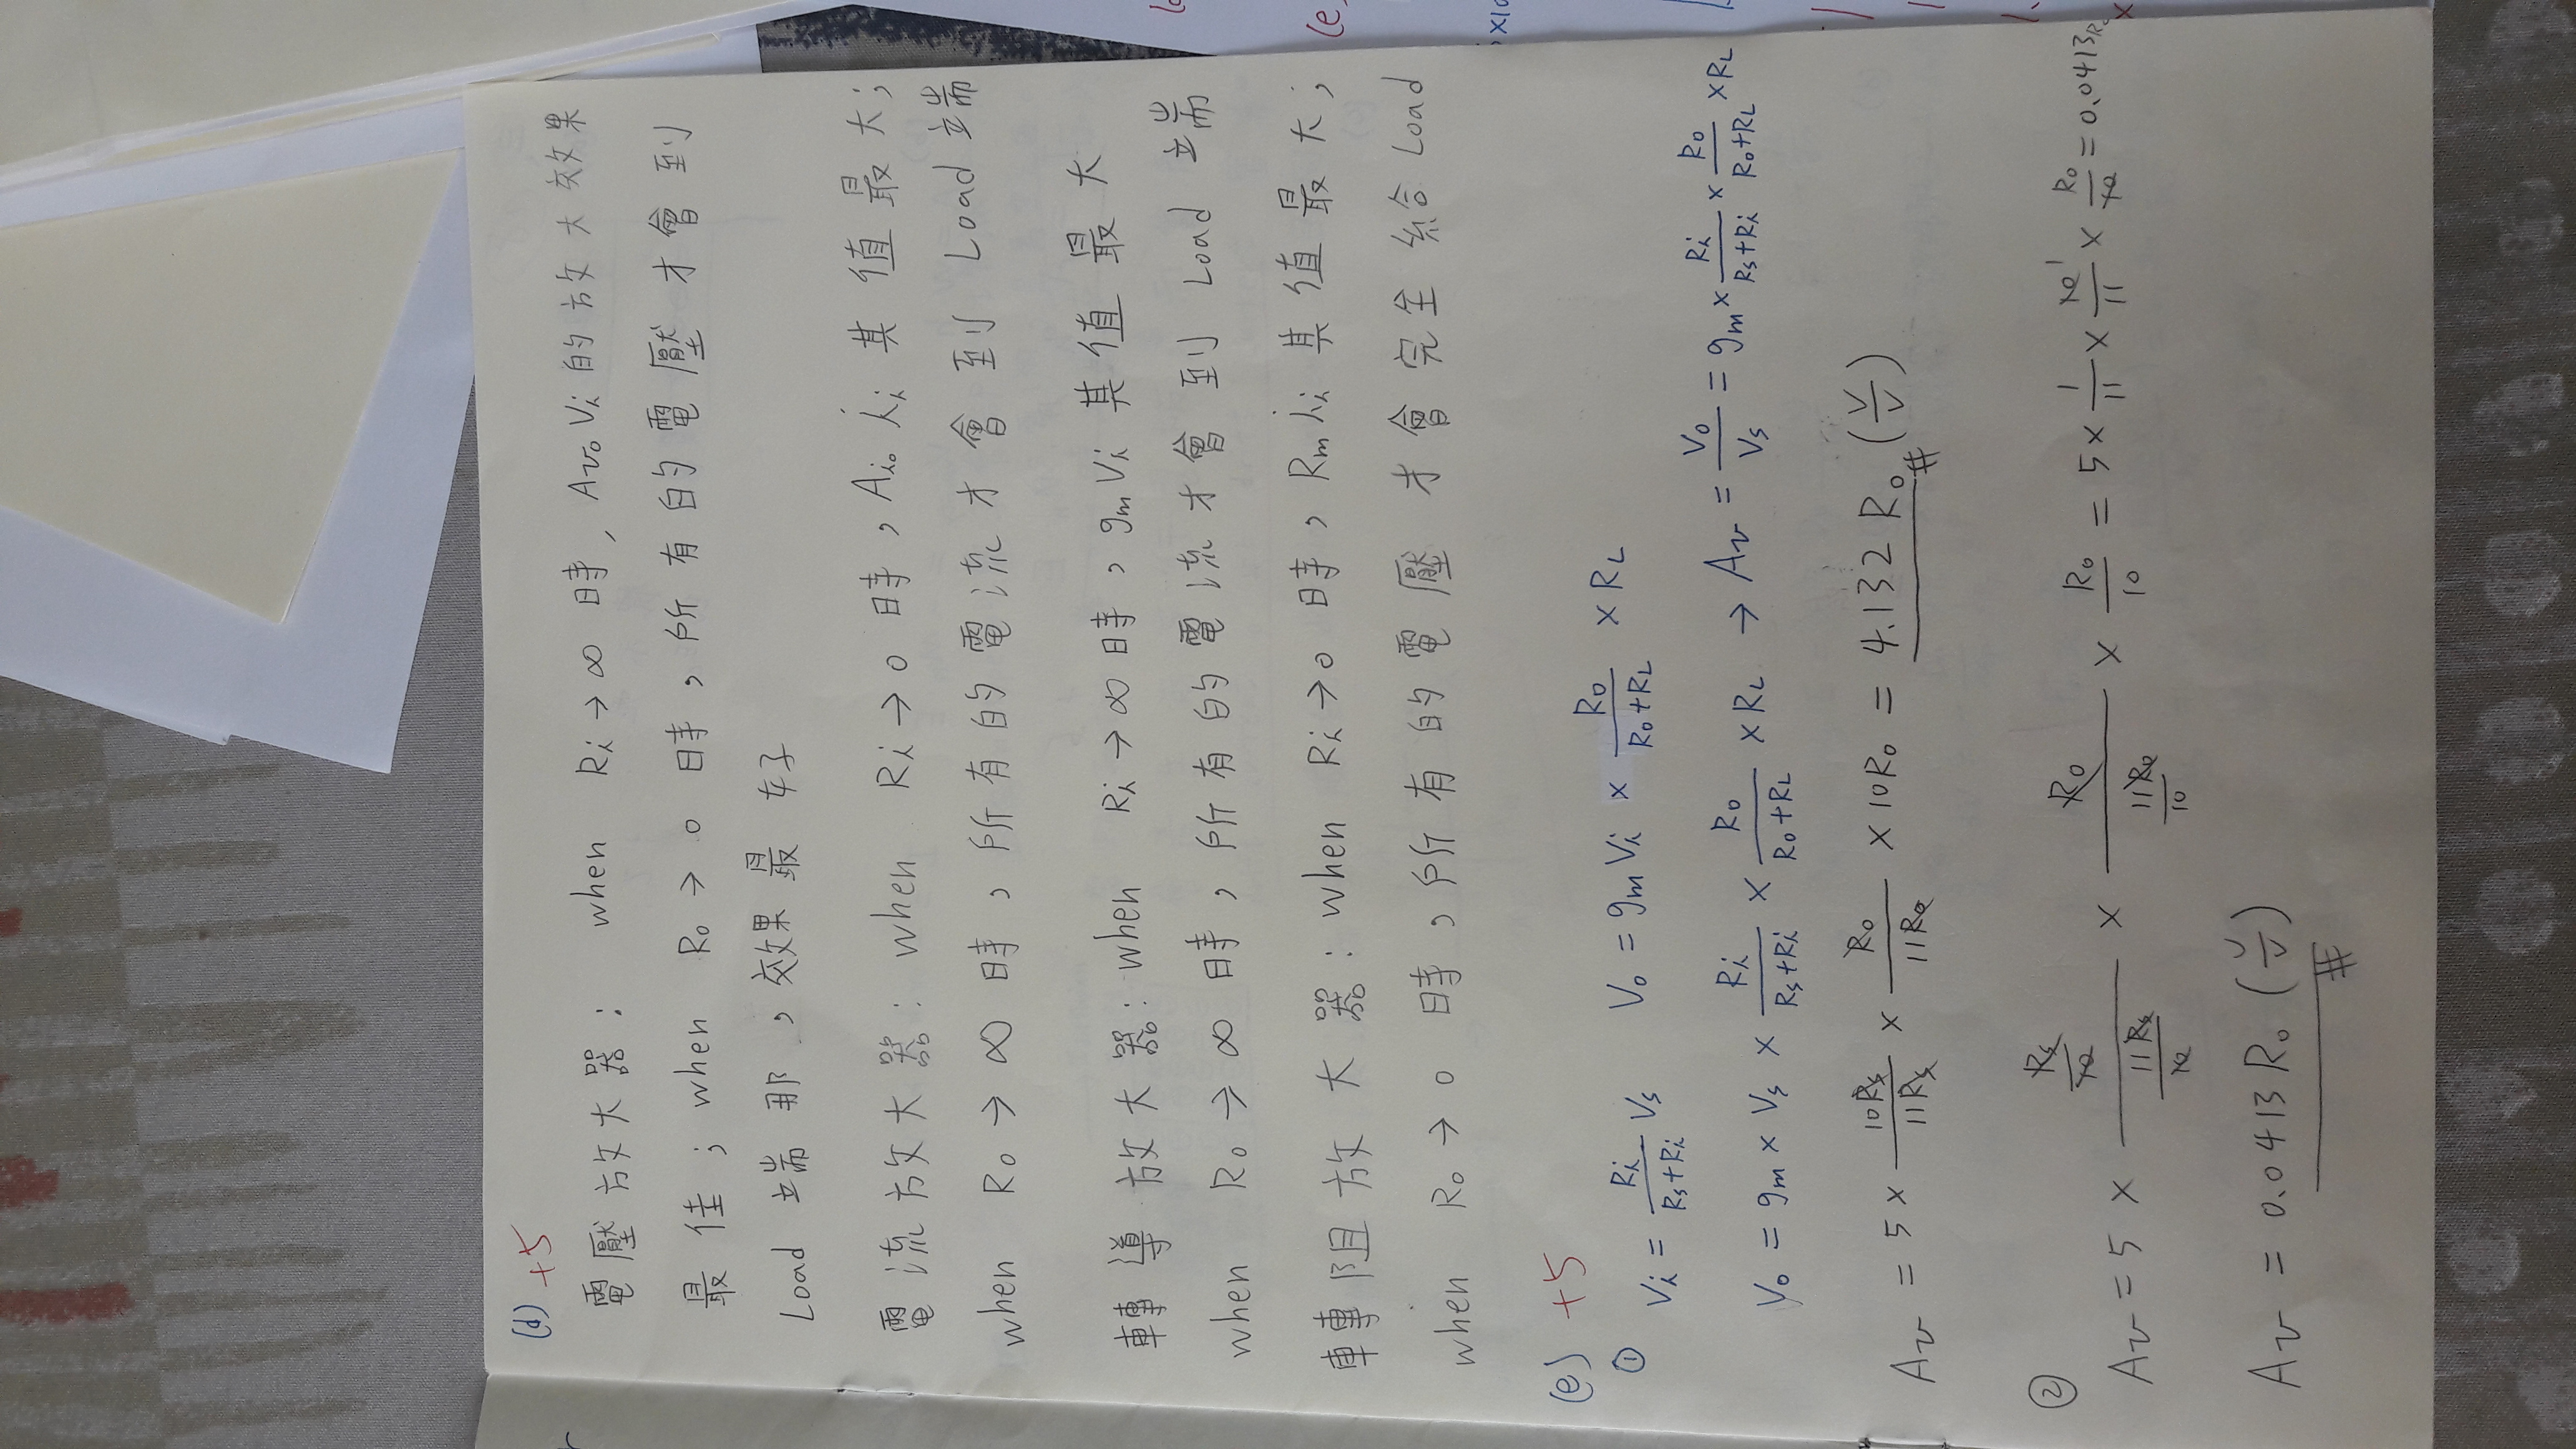 (d) +5
電壓放大器： when Ri → ∞ 時, Avo Vi 的放大效果
最佳；when Ro → 0 時，所有的電壓才會到
Load 端那，效果最好
電流放大器：when Ri → 0 時，Aio ii 其值最大；
when Ro → ∞ 時，所有的電流才會到 Load 端
轉導放大器：when Ri → ∞ 時，gm Vi 其值最大
when Ro → ∞ 時，所有的電流才會到 Load 端
轉阻放大器：when Ri → 0 時，Rm ii 其值最大；
when Ro → 0 時，所有的電壓才會完全給 Load
(e) +5
① Vi = Ri/(Rs+Ri) Vs Vo = gm Vi × Ro/(Ro+RL) × RL
Vo = gm × Vs × Ri/(Rs+Ri) × Ro/(Ro+RL) × RL → Av = Vo/Vs = gm × Ri/(Rs+Ri) × Ro/(Ro+RL) × RL
Av = 5 × 10Rs/11Rs × Ro/11Ro × 10Ro = 4.132 Ro # (V/V)
② Av = 5 × (Rs/10)/(11Rs/10) × Ro/(11Ro/10) × Ro/10 = 5 × 1/11 × 10/11 × Ro/10 = 0.0413Ro
Av = 0.0413 Ro (V/V) #
(e)
×10